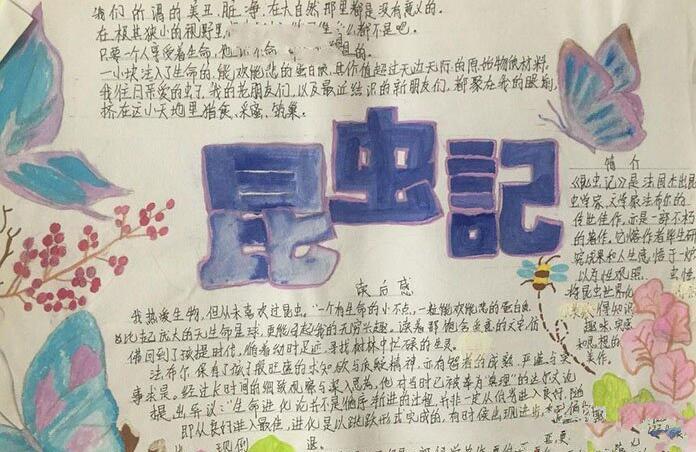 我们所谓的美丑、脏、净,在大自然那里都是没有意义的。
在极其狭小的视野里,
只要一个人享受着生命,他
一小块注入了生命的,能欢能悲的蛋白质,其价值超过无边无际的原始物质材料。
我往日亲爱的虫了,我的老朋友们,以及最近结识的新朋友们,都聚在我的眼前,
挤在这小天地里猎食、采蜜、筑巢。
昆虫記
简介
《昆虫记》是法国杰出昆
虫学家、文学家法布尔的
传世佳作,亦是一部不朽
的著作,它熔作者毕生研
究成果和人生感悟于一炉
以虫性观照
将昆虫世界化
得知识
趣味
和思想的
作。
读后感
我热爱生物,但从未喜欢过昆虫。"一个有生命的小不点,一粒能欢能悲的蛋白质
庞大的无生命星球,更能引起我的无穷兴趣。读着那饱含真意的文字,仿
佛回到了孩提时代,循着幼时足迹,寻找树林中忙碌的生灵。
法布尔,保有了孩子般旺盛的求知欲与探险精神,亦有智者的成熟,严谨与实
事求是。经过长时间的细致观察与深入思考,他对当时已被奉为真理"的达尔文论
提出异议:"生命进化论并不是循序渐进的过程,并非一定从低劣进入良好,随
即从良好进入最佳,进化是以跳跃形式完成的,有时侯出现进步,
现倒退